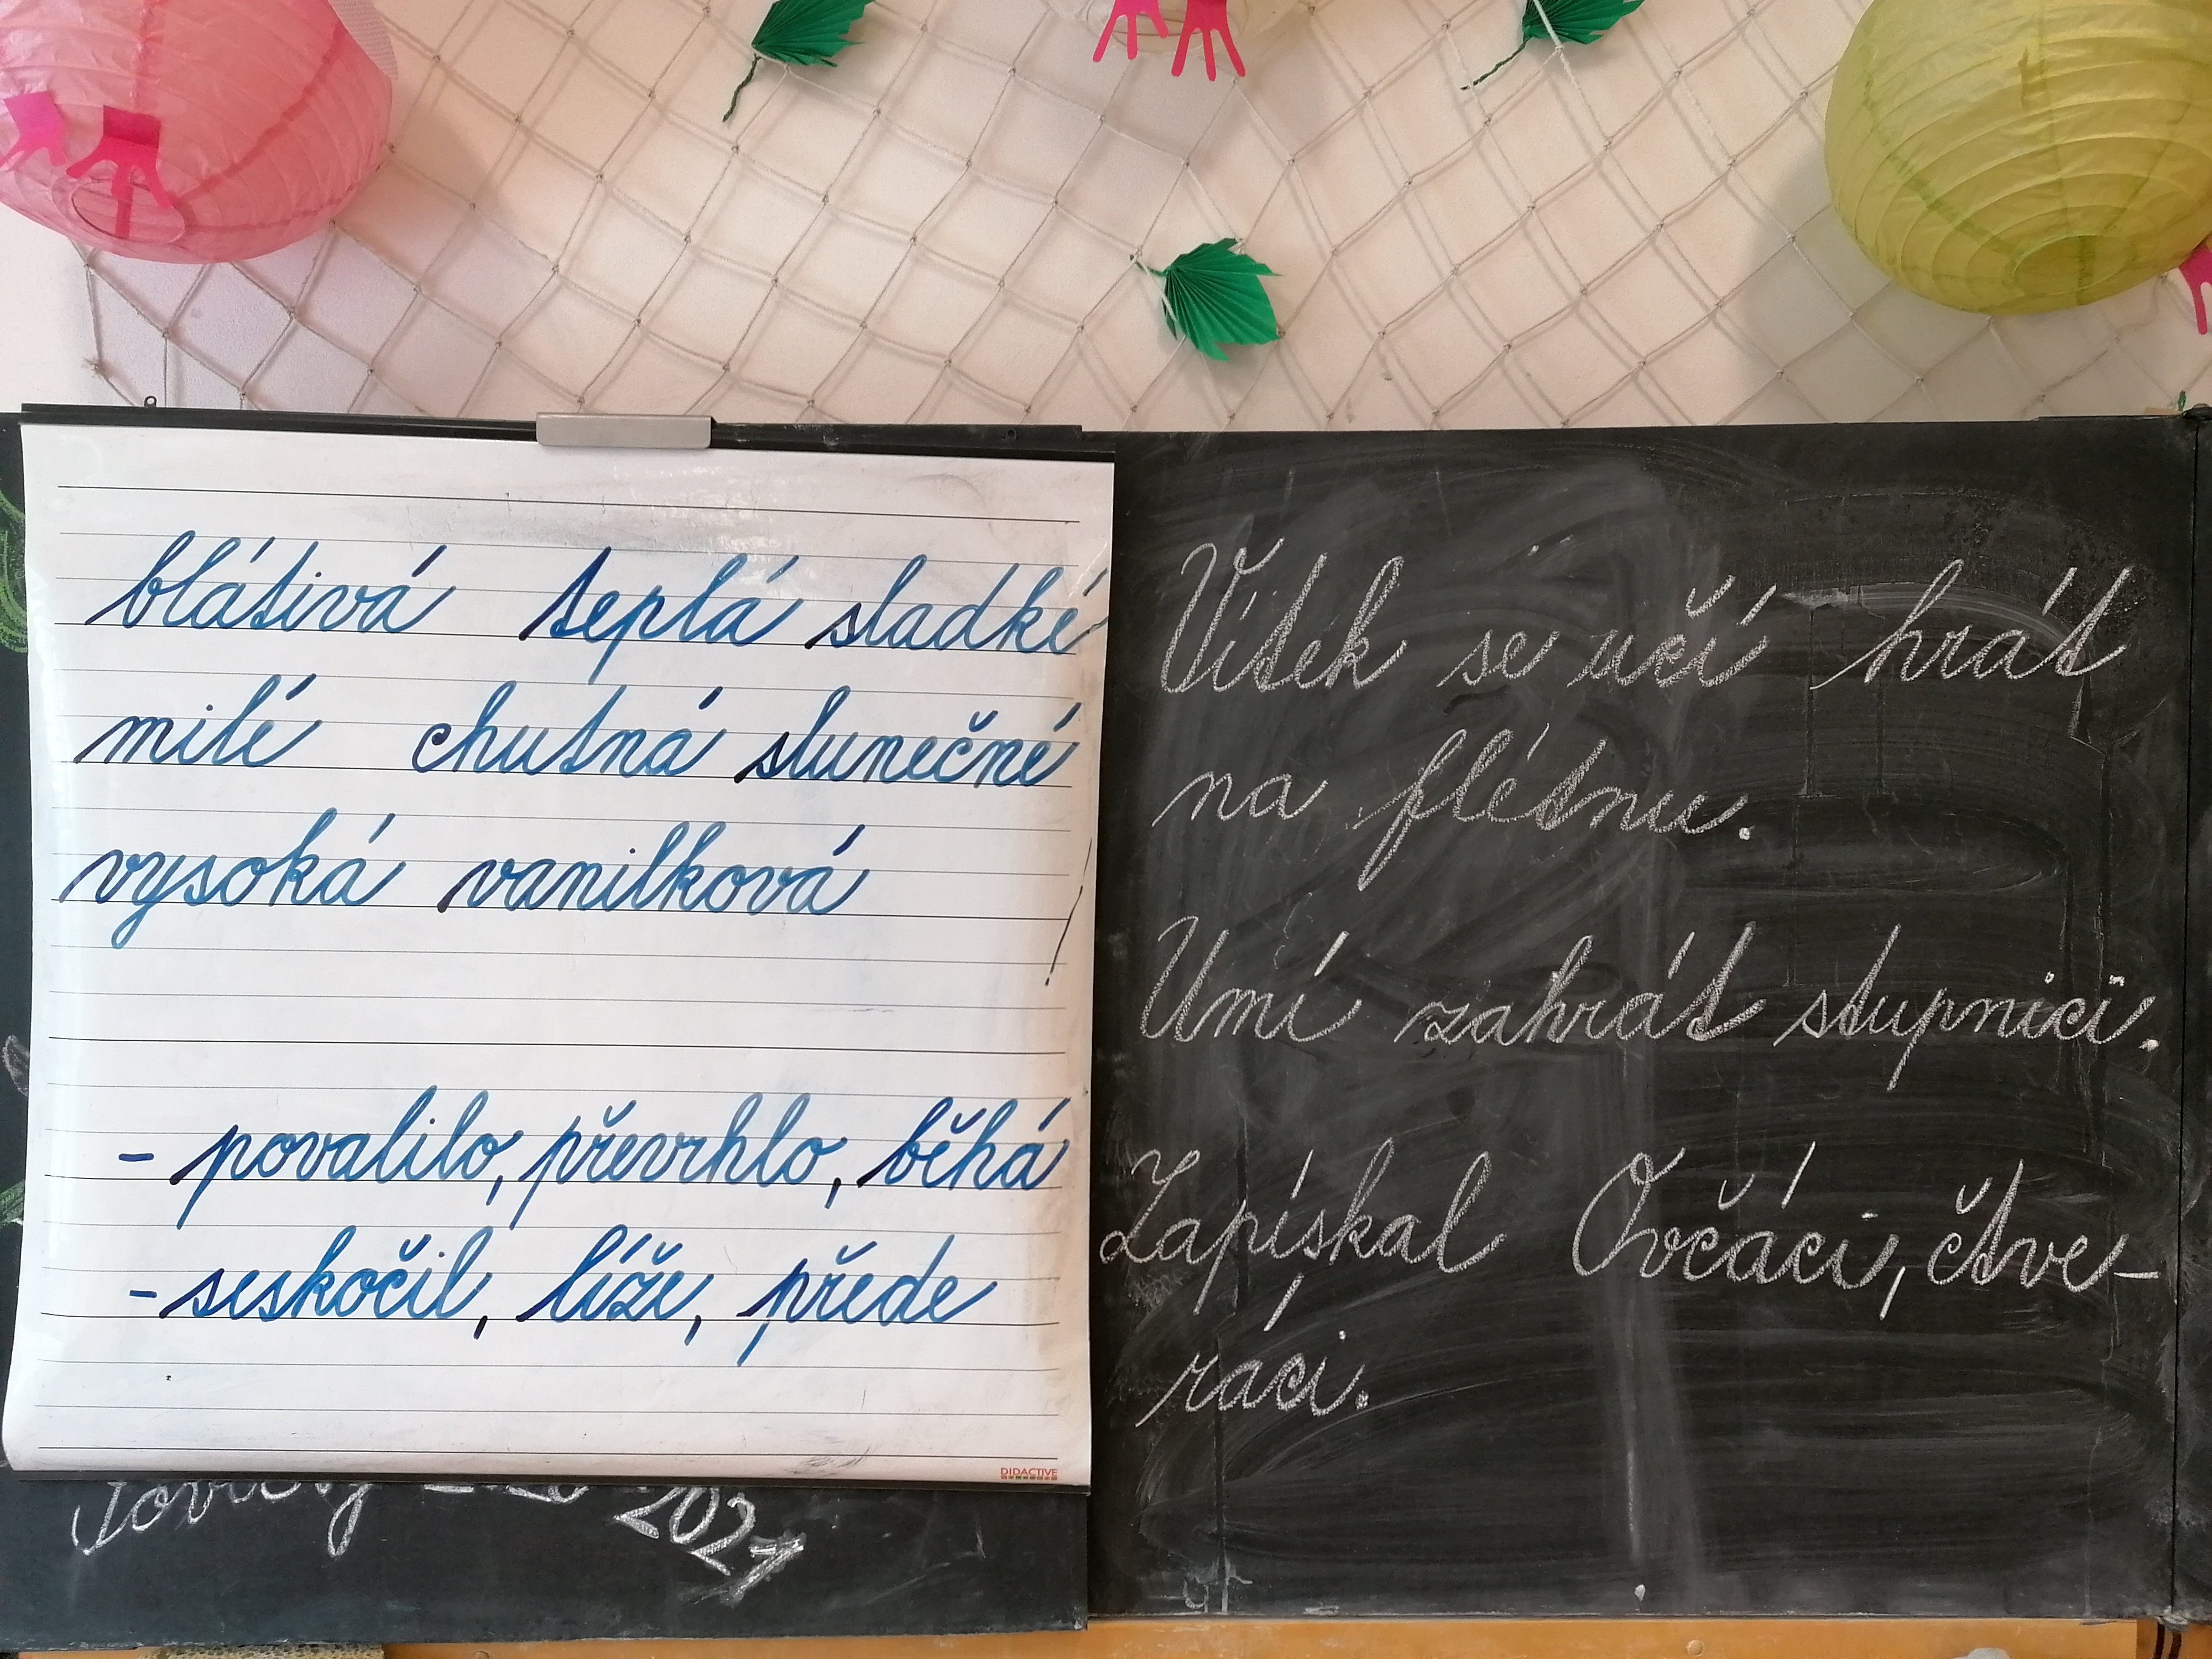 blátivá teplá sladké
milé chutná slunečné
vysoká vanilková
- povalilo, převrhlo, běhá
- seskočil, líže, přede
DIDACTIVE
2021
Vítek se učí hrát
na flétnu.
Umí zahrát stupnici.
Zapískal Ovčáci, čtve-
raci.